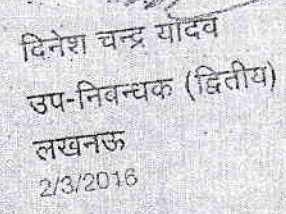 दिनेश चन्द्र यादव
उप-निबन्धक (द्वितीय)
लखनऊ
2/3/2016